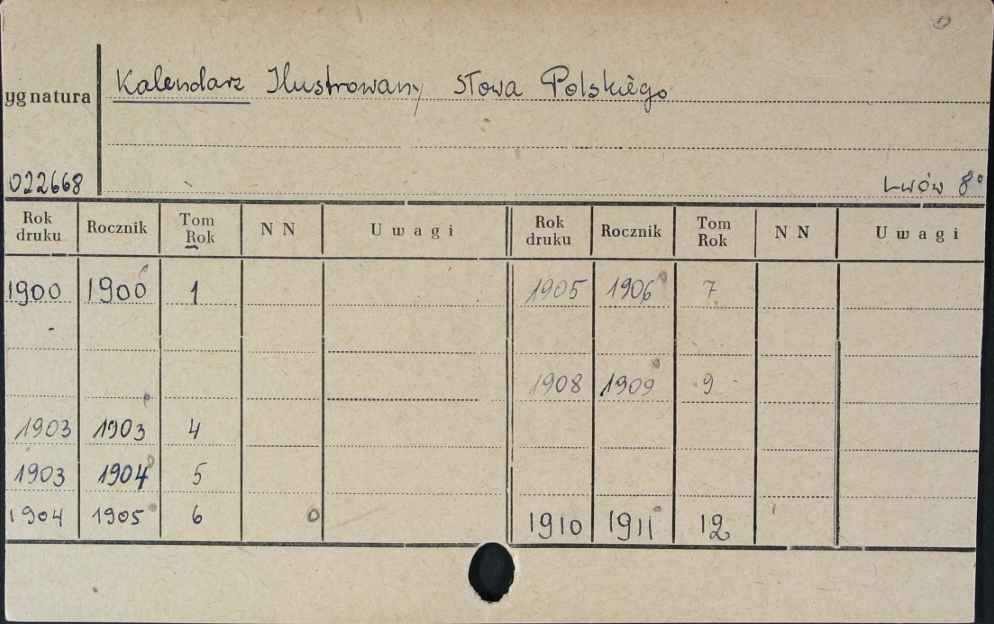 Kalendarz Ilustrowany Słowa Polskiego
ygnatura
022668 Lwów 8°
Rok druku Rocznik Tom Rok N N Uwagi Rok druku Rocznik Tom Rok N N Uwagi
1900 1900 1 1905 1906 7
1908 1909 9
1903 1903 4
1903 1904 5
1904 1905 6 1910 1911 12